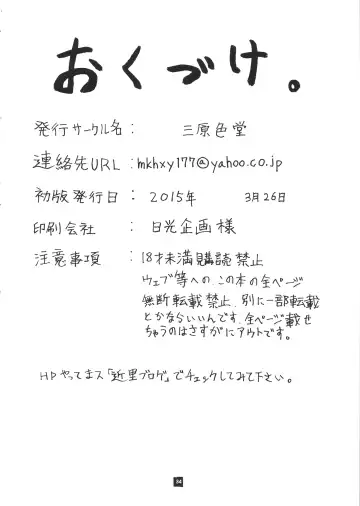 おくづけ。
発行サークル名： 三原色堂
連絡先URL：mkhxy177@yahoo.co.jp
初版発行日： 2015年 3月26日
印刷会社 ： 日光企画様
注意事項 ： 18才未満購読禁止
ウェブ等への、この本の全ページ
無断転載禁止、別に一部転載
とかならいいんです、全ページ載せ
ちゃうのはさすがにアウトです。
HPやってまス「近里ブログ」でチェックしてみて下さい。
34